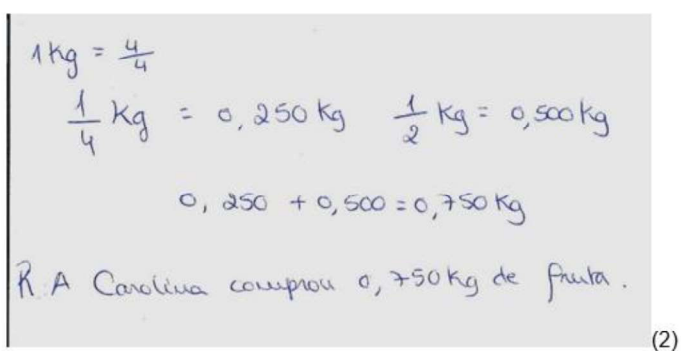 1Kg = 4/4
1/4 Kg = 0,250 Kg 1/2 Kg = 0,500 Kg
0, 250 + 0,500 = 0,750 Kg
R. A Carolina comprou 0,750 Kg de fruta.
(2)